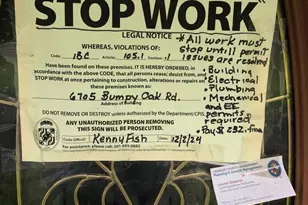 STOP WORK
LEGAL NOTICE
WHEREAS, VIOLATIONS OF:
Code: IBC Article: 105.1
Have been found on these premises. IT IS HEREBY ORDERED, in
accordance with the above CODE, that all persons cease, desist from, and
STOP WORK at once pertaining to construction, alterations or repairs on
these premises known as
6705 Bumpy Oak Rd.
Address of Building
DO NOT REMOVE OR DESTROY unless authorized by the Department/CPS
ANY UNAUTHORIZED PERSON REMOVING
THIS SIGN WILL BE PROSECUTED.
Code Official: Kenny Fish Date: 12/2/24
For assistance, please call:
* All work must
stop until permit
issues are resolved
• Building
• Electrical
• Plumbing
• Mechanical
and
permits
required
• Pay $
Planning & Growth Management